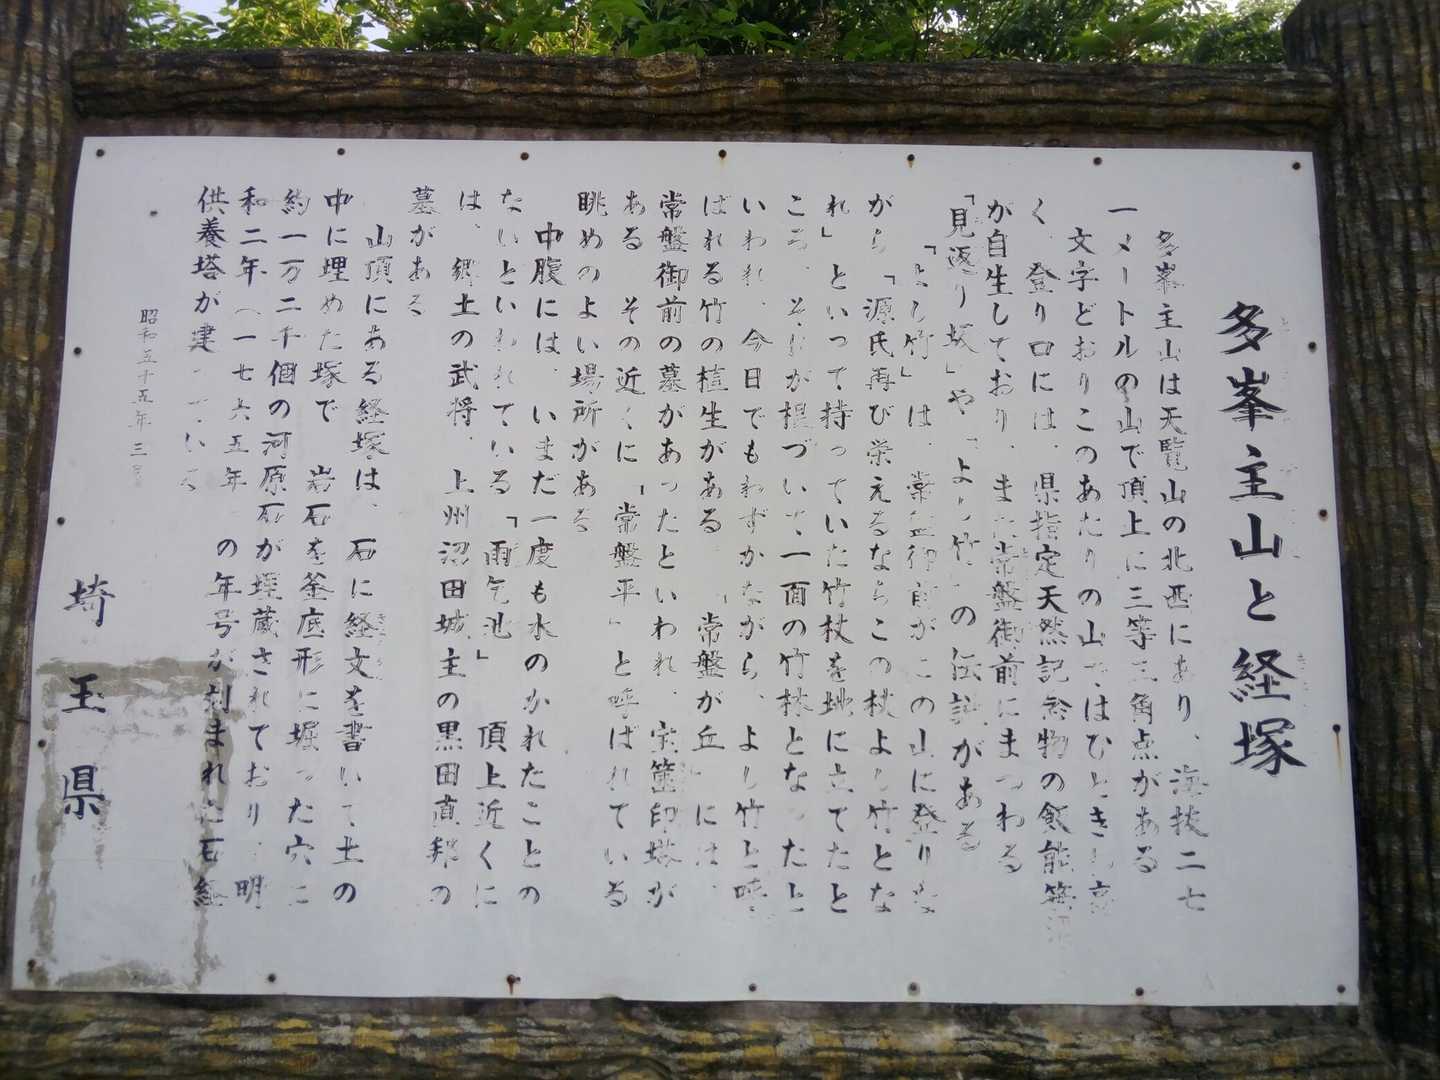 多峯主山と経塚
多峯主山は天覧山の北西にあり、海抜二七
一メートルの山で頂上に三等三角点がある
文字どおりこのあたりの山ではひときわ高
く、登り口には、県指定天然記念物の飯能笹
が自生しており、また常盤御前にまつわる
「見返り坂」や「よし竹」の伝説がある
「よし竹」は 常盤御前がこの山に登りな
がら「源氏再び栄えるならこの杖よし竹とな
れ」といって持っていた竹杖を地に立てたと
ころ、それが根づいて、一面の竹林となったと
いわれ、今日でもわずかながら、よし竹と呼
ばれる竹の植生がある 「常盤が丘」には、
常盤御前の墓があったといわれ、宝篋印塔が
ある その近くに「常盤平」と呼ばれている
眺めのよい場所がある
中腹には、いまだ一度も水のかれたことの
ないといわれている「雨乞池」 頂上近くに
は、郷土の武将、上州沼田城主の黒田直邦の
墓がある
山頂にある経塚は、石に経文を書いて土の
中に埋めた塚で 岩石を釜底形に堀った穴に
約一万二千個の河原石が埋蔵されており、明
和二年（一七六五年 の年号が刻まれた石経
供養塔が建っている
昭和五十五年三月
埼玉県